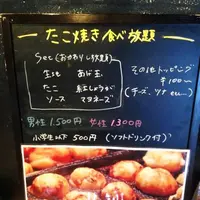 たこ焼き食べ放題
Set (おかわりし放題)
生地 あげ玉
たこ 紅しょうが
ソース マヨネーズ
その他トッピング
¥100〜
(チーズ、ツナ etc...)
男性 1.500円 女性 1.300円
小学生以下 500円 (ソフトドリンク付)